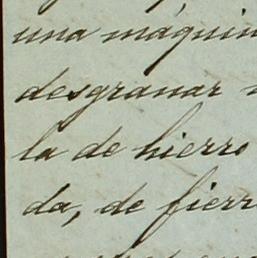 una máquin
desgranar
la de hierro
da, de fierr